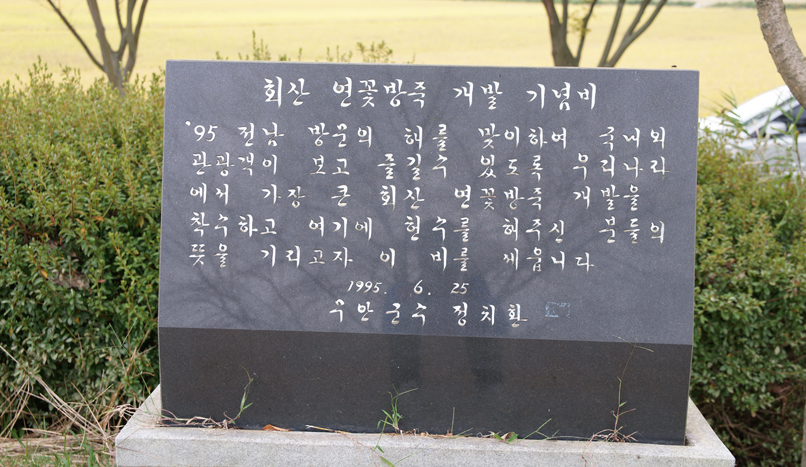 회산 연꽃방죽 개발 기념비
'95 전남 방문의 해를 맞이하여 국내외
관광객이 보고 즐길수 있도록 우리나라
에서 가장 큰 회산 연꽃방죽 개발을
착수하고 여기에 헌수를 해주신 분들의
뜻을 기리고자 이 비를 세웁니다
1995. 6. 25
무안군수 정치환